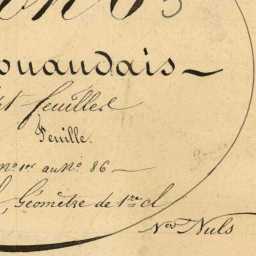 ouaudais
feuilles
Feuille.
n.º 1er au N.º 86 —
, Géomètre de 1re cl
N.os Nuls